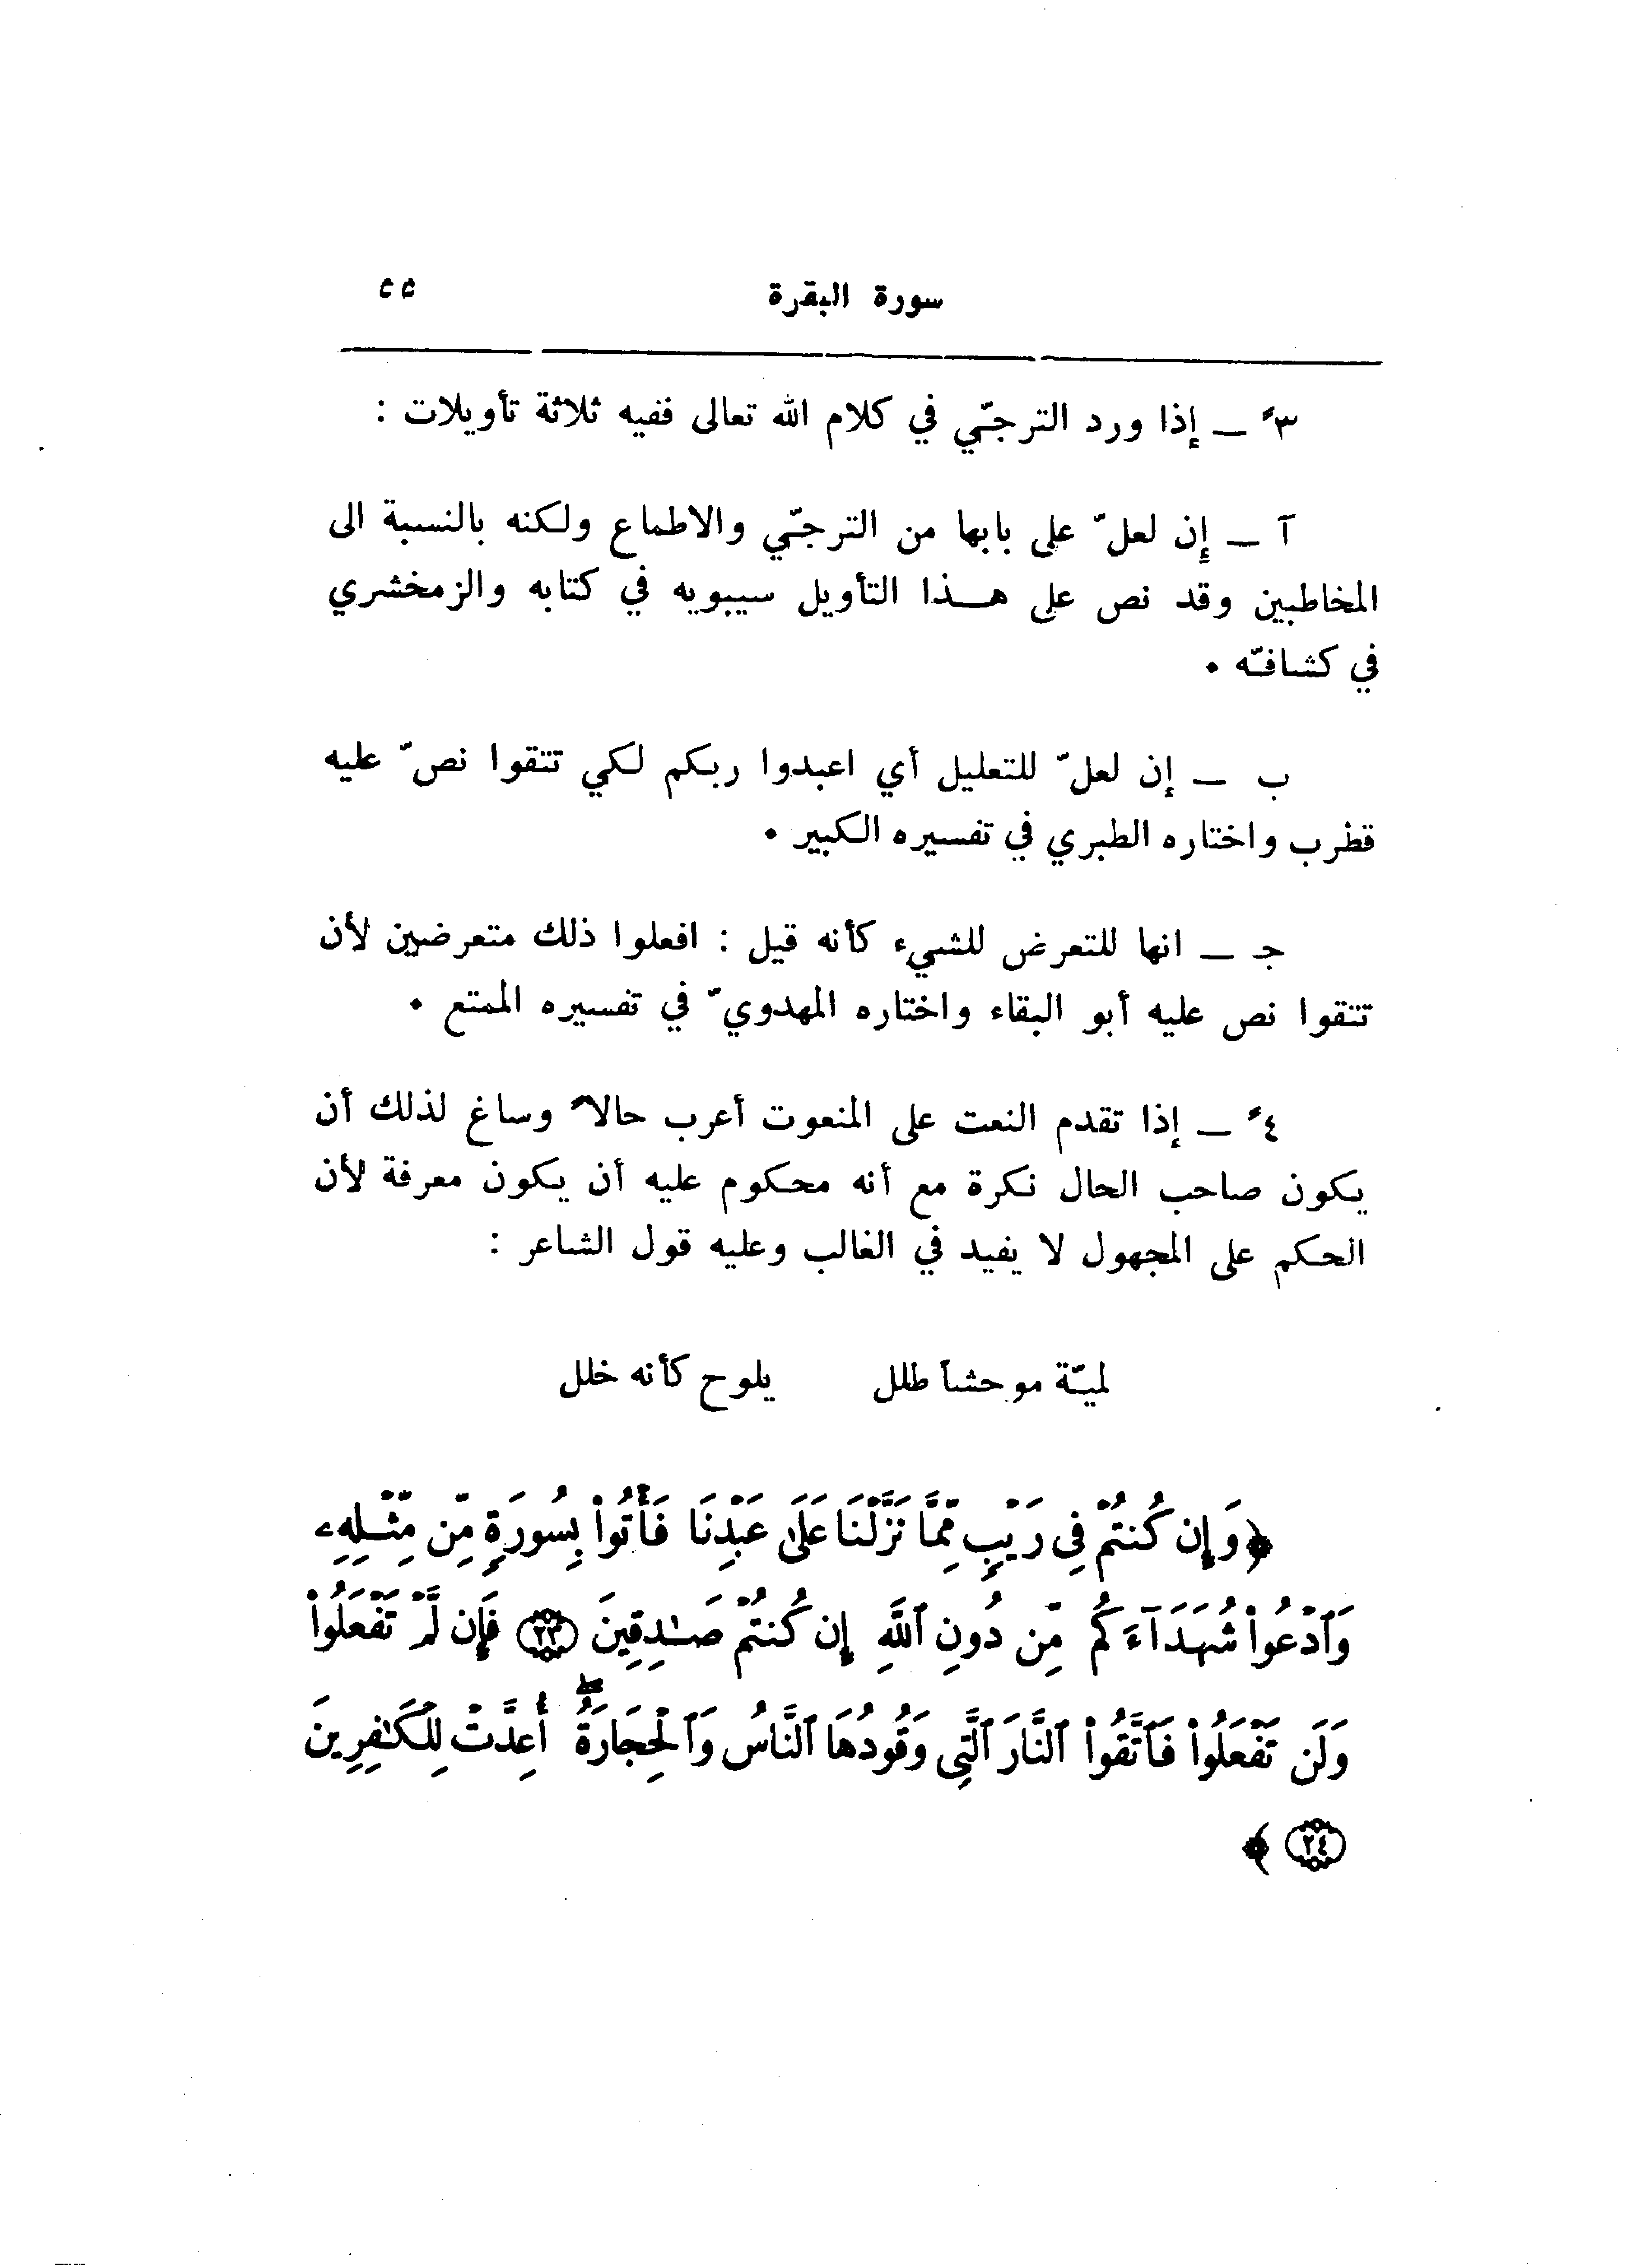 سورة البقرة ٥٥
٣ً ــ إذا ورد الترجّي في كلام الله تعالى ففيه ثلاثة تأويلات :
آ ــ إن لعلّ على بابها من الترجّي والاطماع ولكنه بالنسبة الى
المخاطبين وقد نص على هــذا التأويل سيبويه في كتابه والزمخشري
في كشافّه ٠
ب ــ إن لعلّ للتعليل أي اعبدوا ربكم لكي تتقوا نصّ عليه
قطرب واختاره الطبري في تفسيره الكبير ٠
جـ ــ انها للتعرض للشيء كأنه قيل : افعلوا ذلك متعرضين لأن
تتقوا نص عليه أبو البقاء واختاره المهدويّ في تفسيره الممتع ٠
٤ً ــ إذا تقدم النعت على المنعوت أعرب حالاً وساغ لذلك أن
يكون صاحب الحال نكرة مع أنه محكوم عليه أن يكون معرفة لأن
الحكم على المجهول لا يفيد في الغالب وعليه قول الشاعر :
لميّة موحشاً طلل يلوح كأنه خلل
﴿وَإِن كُنتُمْ فِي رَيْبٍ مِّمَّا نَزَّلْنَا عَلَىٰ عَبْدِنَا فَأْتُوا۟ بِسُورَةٍ مِّن مِّثْلِهِۦ
وَٱدْعُوا۟ شُهَدَآءَكُم مِّن دُونِ ٱللَّهِ إِن كُنتُمْ صَـٰدِقِينَ ٢٣ فَإِن لَّمْ تَفْعَلُوا۟
وَلَن تَفْعَلُوا۟ فَٱتَّقُوا۟ ٱلنَّارَ ٱلَّتِى وَقُودُهَا ٱلنَّاسُ وَٱلْحِجَارَةُ ۖ أُعِدَّتْ لِلْكَـٰفِرِينَ
٢٤ ﴾